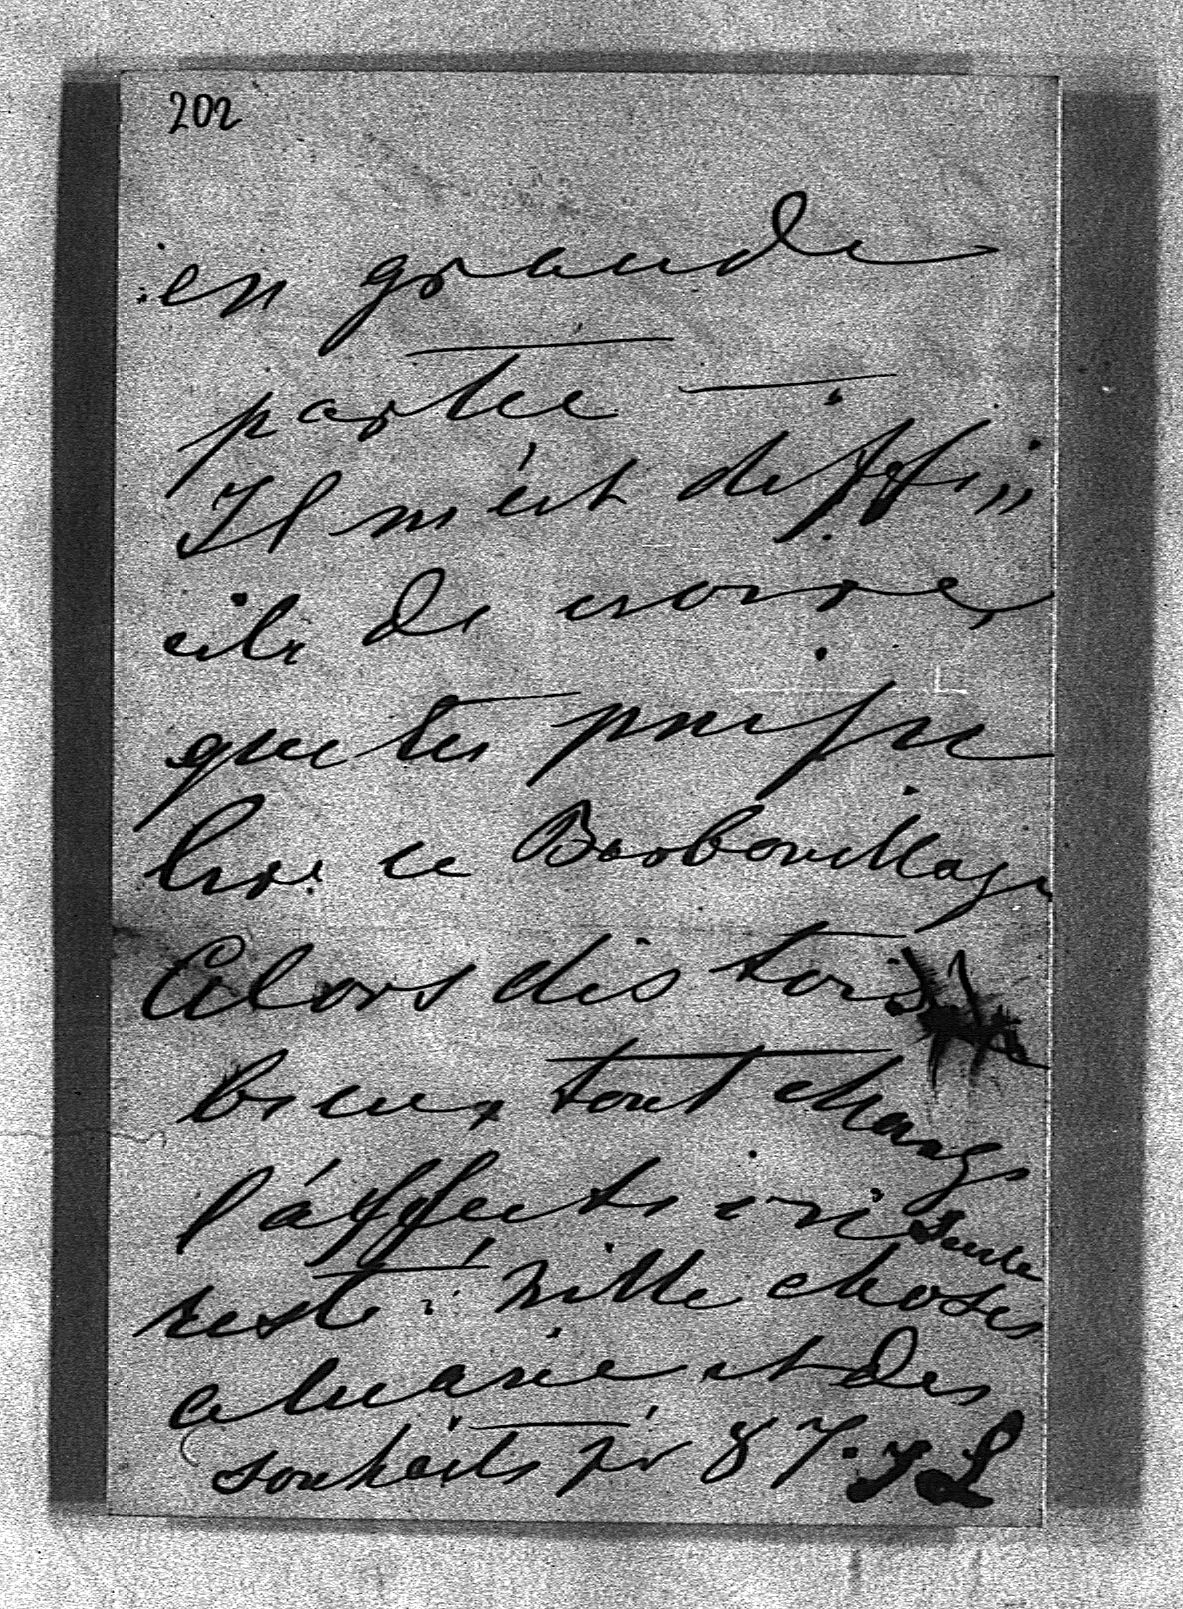 202
en grande
partie
Il m'est diffi"
cile de croire,
que tu puisse
lire ce Barbouillage
Alors dis toi
bien, tout change
l'affection seule
reste. Mille choses
a Marie et des
souhaits pr